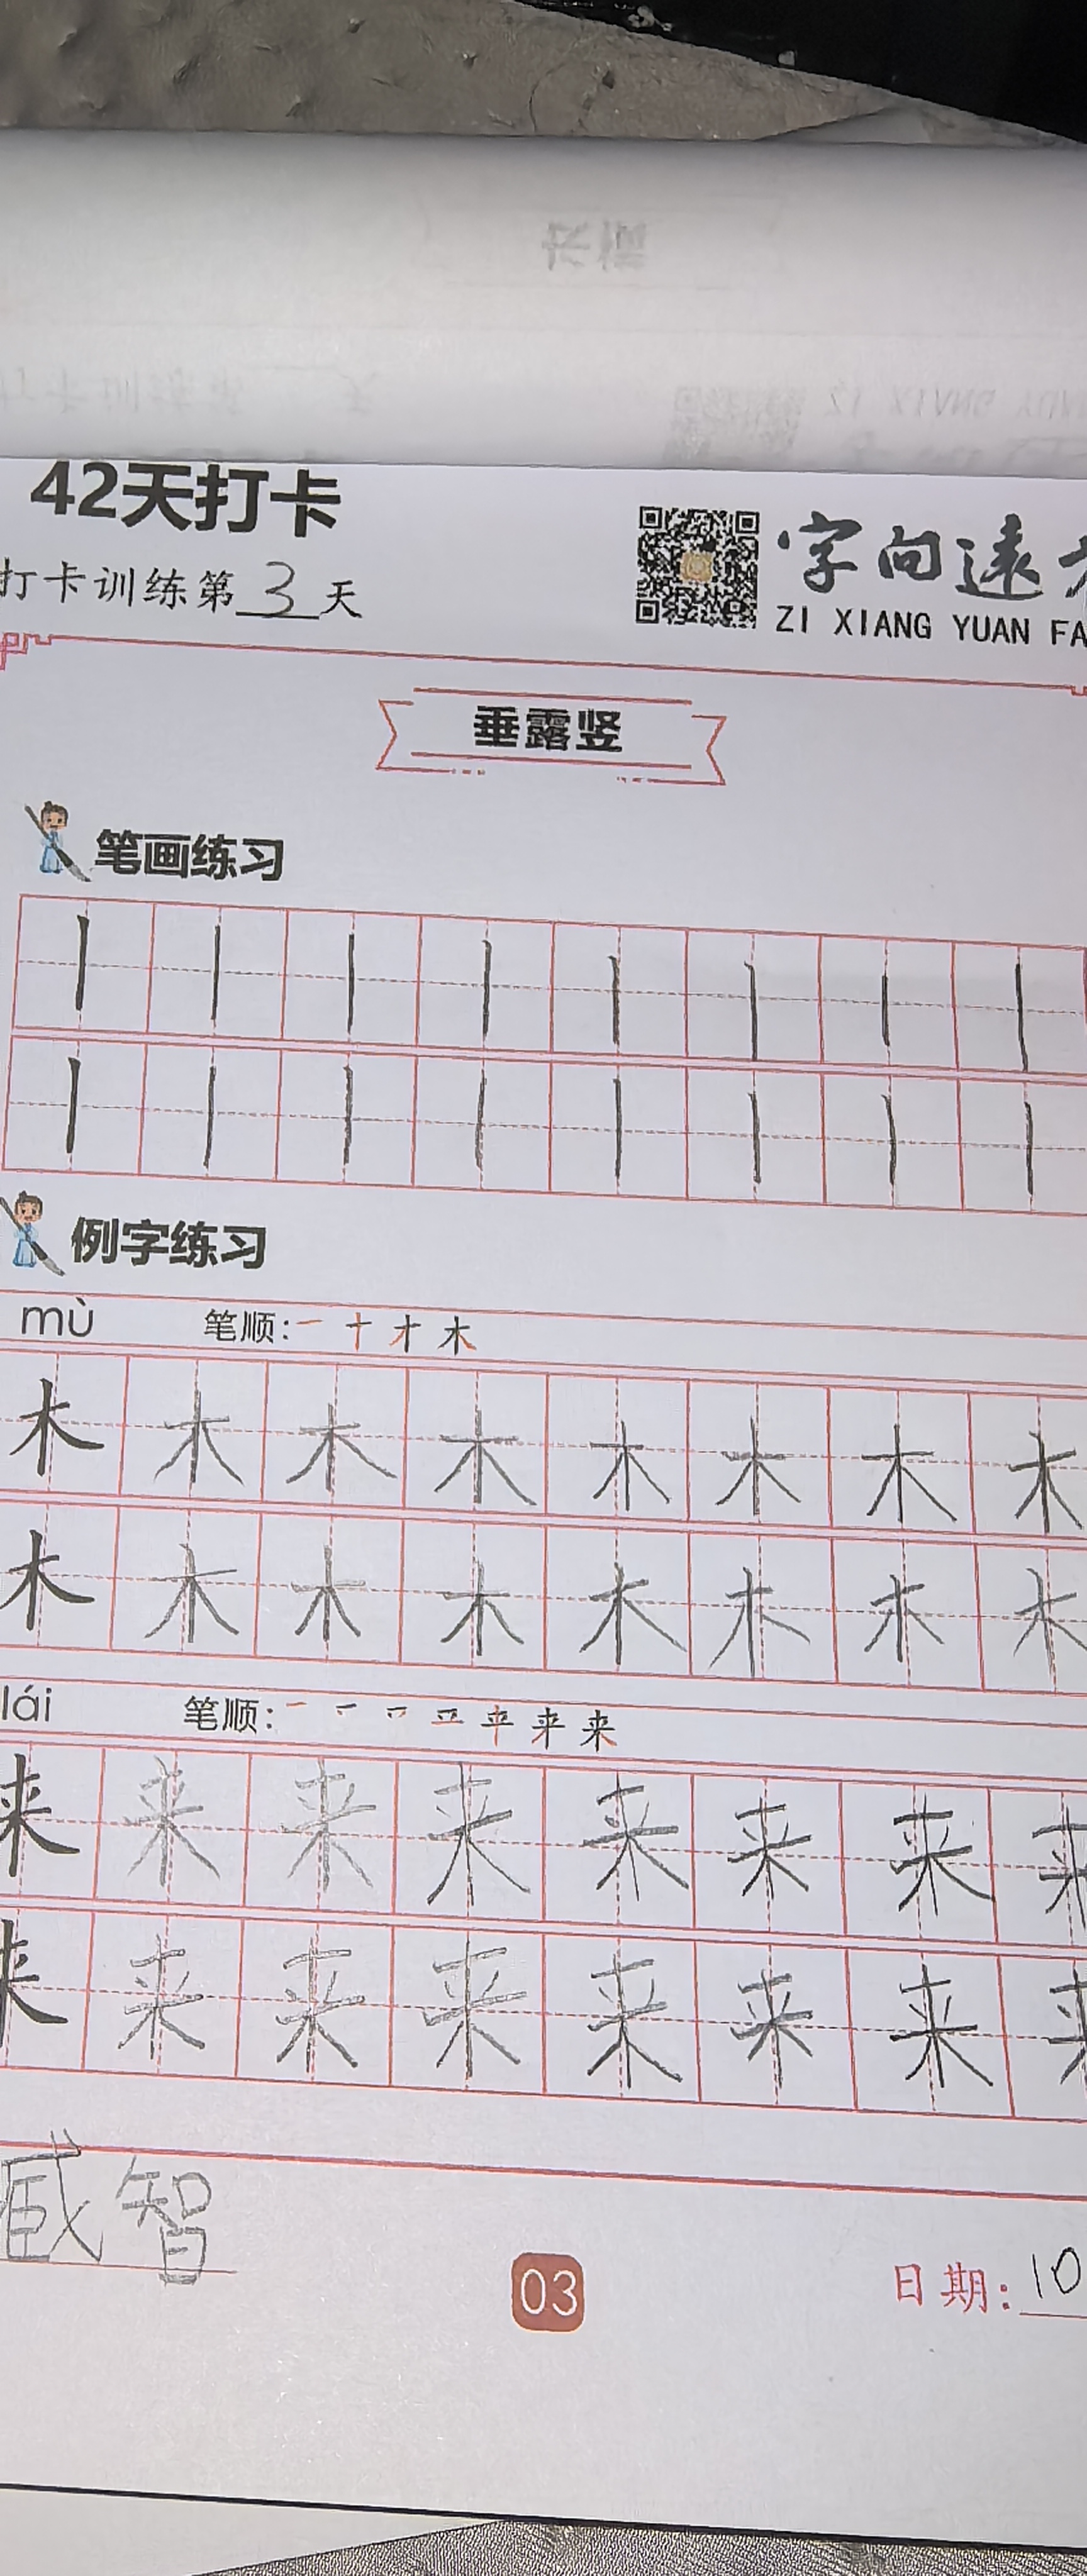 42天打卡
打卡训练第3天
字向遠方
ZI XIANG YUAN FA
垂露竖
笔画练习
丨 丨 丨 丨 丨 丨 丨 丨
丨 丨 丨 丨 丨 丨 丨 丨
例字练习
mù 笔顺: 一 十 才 木
木 木 木 木 木 木 木 木
木 木 木 木 木 木 木 木
lái 笔顺:
来 来 来 来 来 来 来 来
来 来 来 来 来 来 来 来
智
03
日期: 10